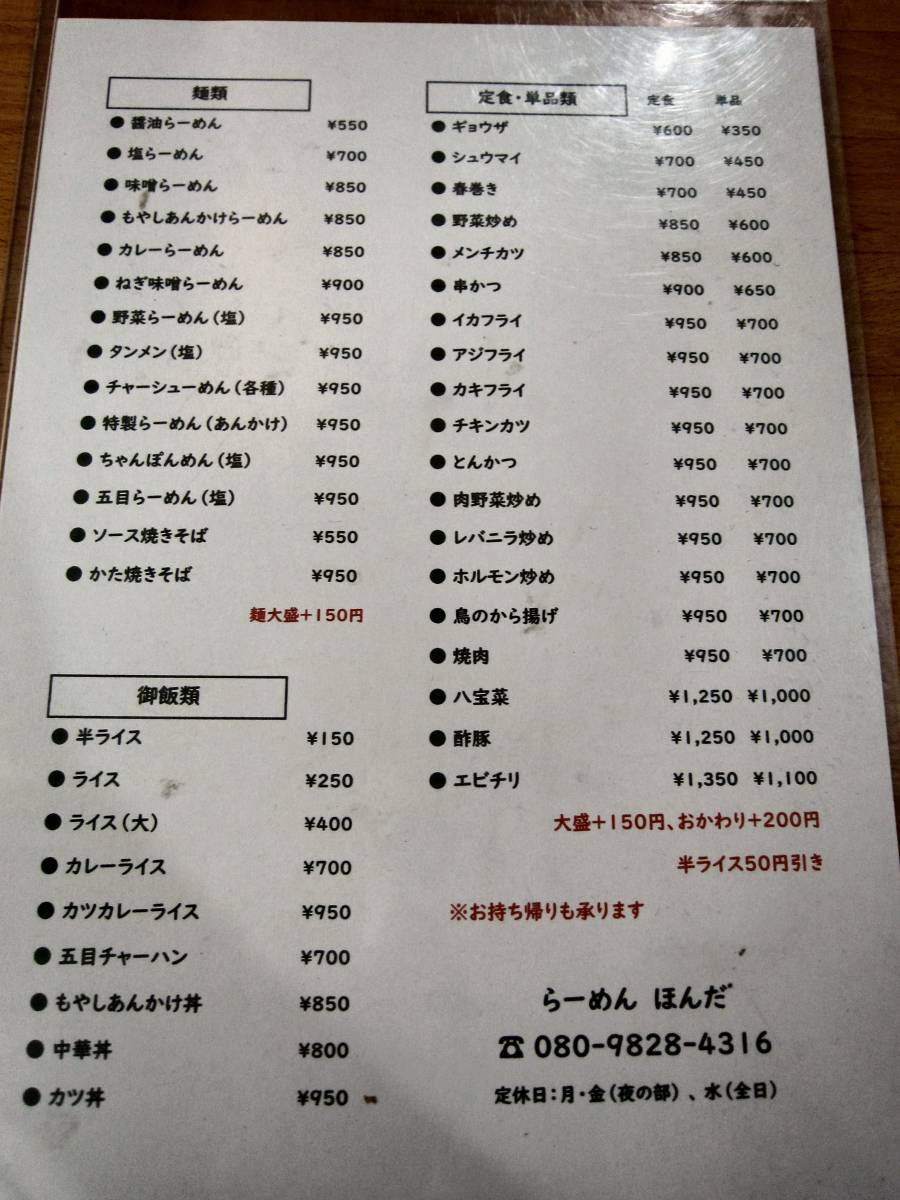 麺類
● 醤油らーめん ¥550
● 塩らーめん ¥700
● 味噌らーめん ¥850
● もやしあんかけらーめん ¥850
● カレーらーめん ¥850
● ねぎ味噌らーめん ¥900
● 野菜らーめん（塩） ¥950
● タンメン（塩） ¥950
● チャーシューめん（各種） ¥950
● 特製らーめん（あんかけ） ¥950
● ちゃんぽんめん（塩） ¥950
● 五目らーめん（塩） ¥950
● ソース焼きそば ¥550
● かた焼きそば ¥950
麺大盛+150円
御飯類
● 半ライス ¥150
● ライス ¥250
● ライス（大） ¥400
● カレーライス ¥700
● カツカレーライス ¥950
● 五目チャーハン ¥700
● もやしあんかけ丼 ¥850
● 中華丼 ¥800
● カツ丼 ¥950
定食・単品類 定食 単品
● ギョウザ ¥600 ¥350
● シュウマイ ¥700 ¥450
● 春巻き ¥700 ¥450
● 野菜炒め ¥850 ¥600
● メンチカツ ¥850 ¥600
● 串かつ ¥900 ¥650
● イカフライ ¥950 ¥700
● アジフライ ¥950 ¥700
● カキフライ ¥950 ¥700
● チキンカツ ¥950 ¥700
● とんかつ ¥950 ¥700
● 肉野菜炒め ¥950 ¥700
● レバニラ炒め ¥950 ¥700
● ホルモン炒め ¥950 ¥700
● 鳥のから揚げ ¥950 ¥700
● 焼肉 ¥950 ¥700
● 八宝菜 ¥1,250 ¥1,000
● 酢豚 ¥1,250 ¥1,000
● エビチリ ¥1,350 ¥1,100
大盛+150円、おかわり+200円
半ライス50円引き
※お持ち帰りも承ります
らーめん ほんだ
☎ 080-9828-4316
定休日：月・金（夜の部）、水（全日）